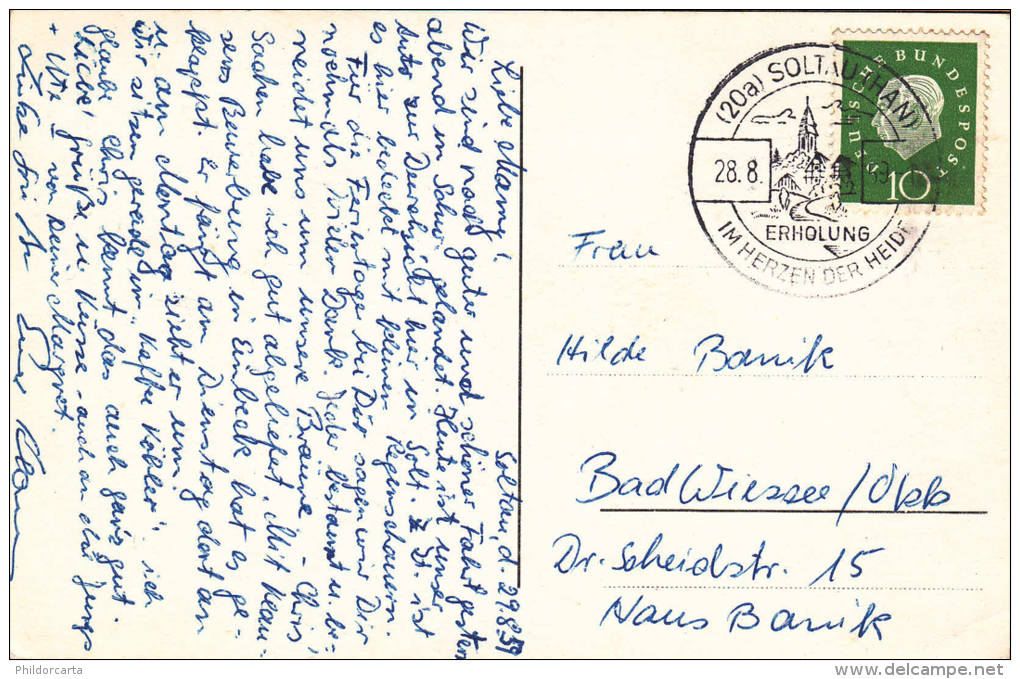 Soltau, d. 29.8.59
Liebe Mamy!
Wir sind nach guter und schöner Fahrt gestern
abend in Schw. gelandet. Heute ist unser
Auto zur Durchsicht hier in Solt. Zt. ist
es hier bedeckt mit kleinen Regenschauern.
Für die Ferientage bei Dir sagen wir Dir
nochmals vielen Dank. Jeder bestaunt u. be-
neidet uns um unsere Bräune. – Chris'
Sachen habe ich gut abgeliefert. Mit
sens Bewerbung in Einbeck hat es ge-
klappt. Er fängt am Dienstag dort an
u. am Montag zieht er um.
Wir sitzen gerade im "Kaffee Köhler", ich
glaube Chris kennt das auch ganz gut.
Liebe Grüße u. Küsse – auch an die Jungs
+ Ute – von Deiner Margret.
DEUTSCHE BUNDESPOST
10
(20a) SOLTAU (HAN)
28.8.
ERHOLUNG
IM HERZEN DER HEIDE
Frau
Hilde Banik
Bad Wiessee/Obb
Dr. Scheidstr. 15
Haus Banik
Phildorcarta
www.delcampe.net